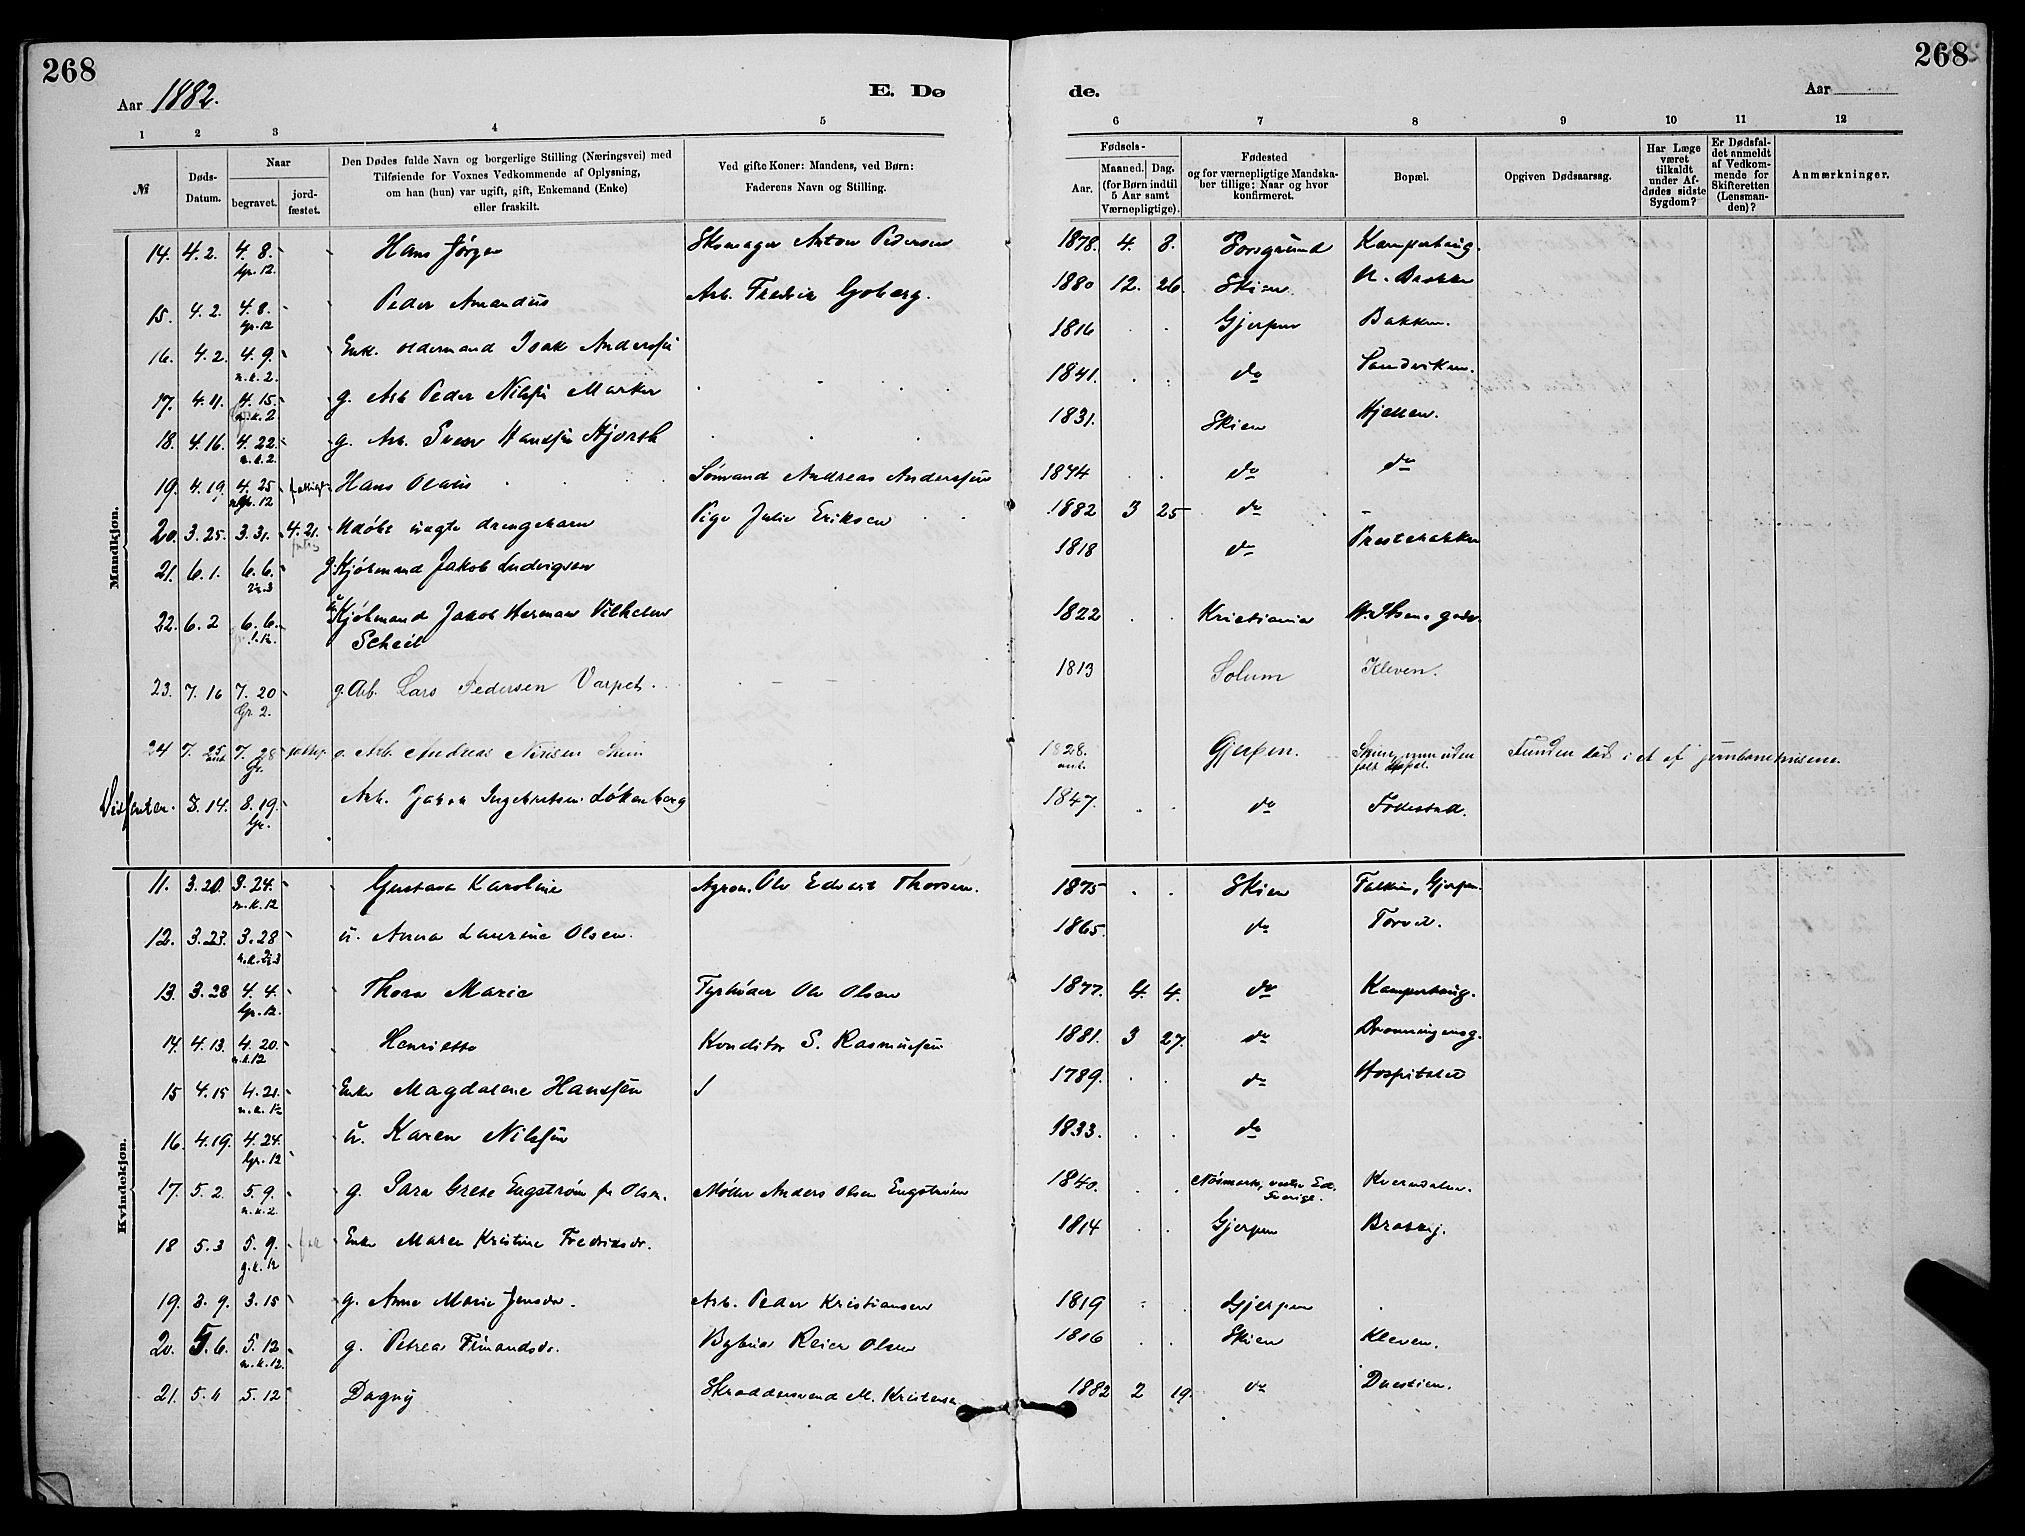 268
268
Aar 1882.
E. Dø
de.
Aar
1 2 3 4 5 6 7 8 9 10 11 12
№
Døds-Datum.
Naar
begravet.
jord-fæstet.
Den Dødes fulde Navn og borgerlige Stilling (Næringsvei) med
Tilføiende for Voxnes Vedkommende af Oplysning,
om han (hun) var ugift, gift, Enkemand (Enke)
eller fraskilt.
Ved gifte Koner: Mandens, ved Børn:
Faderens Navn og Stilling.
Fødsels-
Aar.
Maaned. Dag.
(for Børn indtil
5 Aar samt
Værnepligtige).
Fødested
og for værnepligtige Mandska-
ber tillige: Naar og hvor
konfirmeret.
Bopæl.
Opgiven Dødsaarsag.
Har Læge
været
tilkaldt
under Af-
dødes sidste
Sygdom?
Er Dødsfal-
det anmeldt
af Vedkom-
mende for
Skifteretten
(Lensman-
den)?
Anmærkninger.
Mandkjøn.
14. 4.2. 4.8. Hans Jørgen Skomager Anton Pedersen 1878. 4. 8. Porsgrund Kamperhaug.
Gr. 12.
15. 4.2. 4.8. Peder Amandus Arb. Fredrik Goberg. 1880 12. 26. Skien N. Bakken
Gr. 12
16. 4.2. 4.9. Enk. oldermand Isak Anderssen 1816 Gjerpen Bakken.
n.k.2.
17. 4.11. 4.15. g. Arb Peder Nilssen Marker 1841. do Sandviken.
n.k.2
18. 4.16. 4.22. g. Arb. Svens Hansen Hjorth 1831. Skien Hjellen.
n.k.2.
19. 4.19. 4.25 fattigt. Hans Olaus Sømand Andreas Anderssen 1874 do do
Gr. 12
20. 3.25. 3.31. 4.21. Udøbt uægte drengebarn Pige Julie Eriksen 1882 3 25 do -
21. 6.1. 6.6. g. Kjøbmand Jakob Ludvigsen 1818 do Prestebakken
22. 6.2 6.6. u. Kjøbmand Jakob Herman Vilhelm 1822 Kristiania H. Ibsens gade.
Scheel
23. 7.16 7.20 g. Arb. Lars Pedersen Varpet. 1813 Solum Kleven.
Gr. 2.
24 7.25 7.28 g. Arb. Andreas Nilsen 1828. Gjerpen. Skien, men uden Funden død i et af jernbanehusene.
ant. Gr. ant. fast bopæl.
8.14. 8.19. Arb. Johan Ingebretsen Løkenberg 1847. do Fødestad.
Gr.
Kvindekjøn.
11. 3.20. 3.24. Gustava Karoline Agron. Ole Edvard Thorsen. 1875 Skien Falkum, Gjerpen.
n.k.12
12. 3.23. 3.28 u. Anna Laurine Olsen. 1865. do Torvet.
13. 3.28 4.4. Thora Marie Fyrbøder Ole Olsen 1877. 4. 4. do Kamperhaug.
Gr. 12.
14. 4.13. 4.20. Henriette Konditor S. Rasmussen 1881. 3 27. do Dronningensg.
n.k.12
15 4.15 4.21. Enke Magdalene Hanssen 1789. do Hospitalet
n.k.12
16. 4.19. 4.24. u. Karen Nilssen 1833. do
Gr. 12
17. 5.2. 5.9. g. Sara Grete Engstrøm f. Olsen. Møller Anders Olsen Engstrøm 1840. Nøsmark, vestre Ed, Sverige. Kverndalen.
n.k.2.
18 5.3 5.9. Enke Maren Kristine Fredriksdr. 1814 Gjerpen
g.k.12
19. 3.9. 3.15 g. Anne Marie Jensdr. Arb. Peder Kristiansen 1819 Gjerpen
20. 5.6. 5.12 g. Petrea Finnandsdr. Bybud Reier Olsen 1816 Skien Kleven.
n.k.12.
21. 5.11 5.12 Dagny Skræddersvend M. Kristensen 1882 2 19. do Duestien.